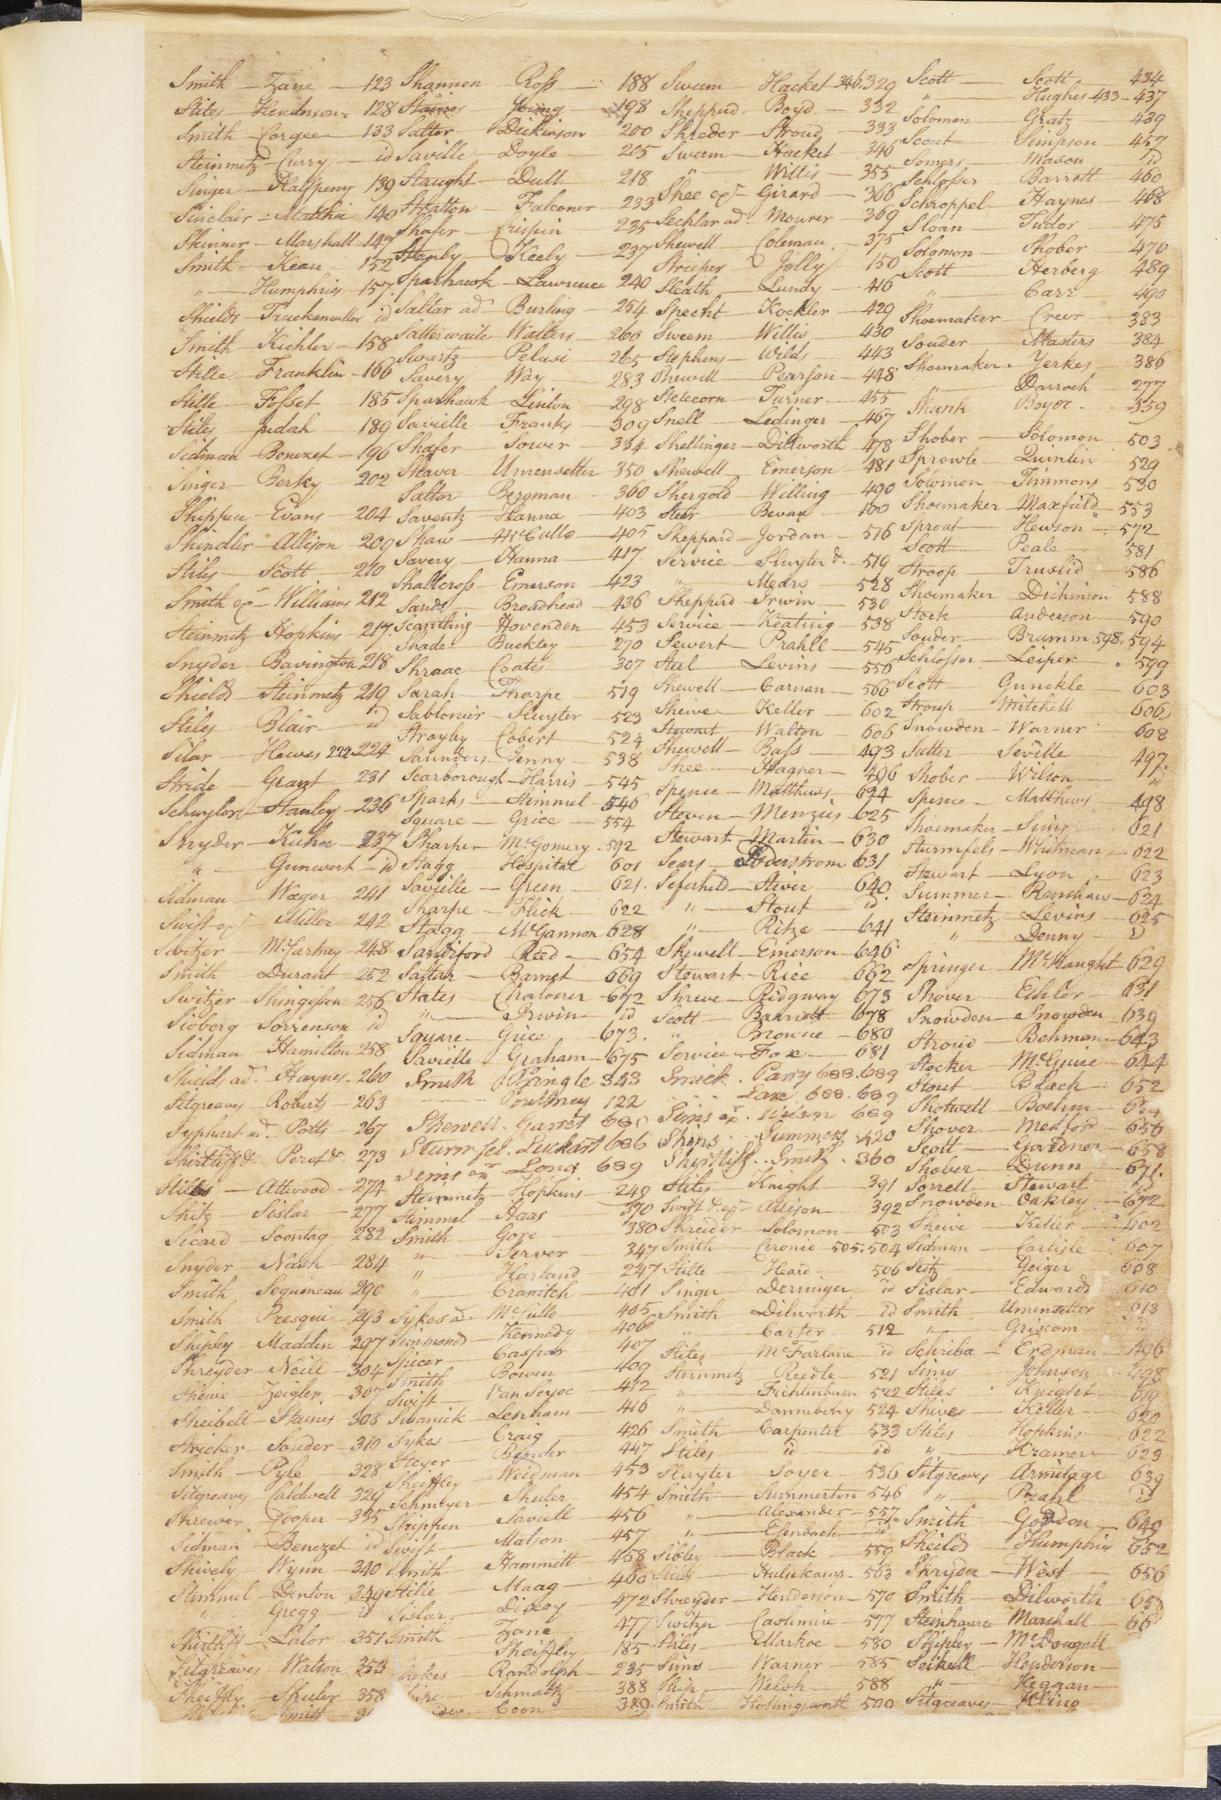 Smith — Zane — 123
Stites — Henderson — 128
Smith — Corgee — 133
Steinmetz — Curry — id
Singer — Halfpeny 139
Sinclair — Matthie 140
Skinner — Marshall 147
Smith — Kean 152
" — Humphris 157
Shields — Truckenmiller id
Smith Kichler — 158
Stille — Franklin 166
Stille — Fosset 185
Stiles Judah 189
Sidman Benezet — 196
Singer — Persky 202
Shippen — Evans 204
Shindler Allison 209
Stiles — Scott 210
Smith exr Williams 212
Steinmetz Hopkins 217
Snyder Bavington 218
Shields Steinmetz 219
Stiles Blair id
Silar — Hewes 222-224
Stride — Grant 231
Schuyler — Stanley — 236
Snyder — Kuhn 237
" Gunwert — id
Sidman — Wager 241
Swift exr Miller 242
Switzer McCartney 248
Smith Durant 252
Switzer Shingelsen 256
Sioberg Sorrenson id
Sidman Hamilton 258
Shields ad. Haynes 260
Sitgreaves Roberts 263
Syphert ad. Potts 267
Shirtliff & Perot & 273
Stiles — Attwood — 274
Shitz Sistar — 277
Sicard — Soontag 282
Snyder Nash 284
Smith Seguineau 290
Smith Presqui 293
Shipley Madden 297
Shreyder Neill 304
Shewe Zeigler 307
Sheibell — Staines 308
Stricker Souder 310
Smith — Pyle 328
Sitgreaves Caldwell 329
Shrewer Cooper 335
Sidman — Benezet id
Shively Wynn 340
Stimmel Denton 349
" Gregg id
Shirtliff Lalor 351
Sitgreaves Watson 353
Sheiffly — Shuler 358
Smith
Shannon Ross — 188
Staines Young 198
Salter Dickinson 200
Saville — Doyle 205
Staught — Dult 218
Stratton Falconer 233
Shafer — Crispin 235
Stanly — Keely — 237
Sparhawk — Lawrence 240
Saltar ad. Burling — 254
Satterwaite Walters 260
Swartz — Pelusi 265
Savery Way 283
Sparhawk Linton 298
Savielle — Franks 309
Shafer Sower 334
Shaver Umensetter 350
Saltar Bergman 360
Saventz — Hanna 403
Shaw — McCullo 405
Savery — Hanna — 417
Shallcross — Emerson 423
Sands Broadhead 436
Scantling Hovenden 453
Shade Buckley 270
Shraac Coates 307
Sarah Tharpe 519
Sablonier Sluyter 523
Strayby Cobert 524
Saunders Jenny 538
Scarborough — Harris — 545
Sparks — Stimmel — 546
Square — Grice — 554
Sharpe — McGomery 592
Stagg Hospital 601
Savielle — Green 621
Sharpe — Flick 622
Stagg — McGannon 628
Sandiford Reed — 654
Saltar — Barnet 669
States — Chaloner 672
" Irwin — id
Square Grice — 673
Savielle Graham — 675
Smith Pringle 343
" Poultney 122
Shewell Garret 680
Sturm jel. Luckart 686
Sims exr Long 689
Steinmetz — Hopkins 249
Stimmel — Haas 370
Smith Gore 380
" — Server 347
" Harland 247
" Cranitch 401
Sykes ad. McCullo 405
Simmonds Kennedy 406
Spicer Caspar 407
Smith Bowen 409
Swift Van Seyoc 412
Swanick Lenham 416
Sykes Craig 426
Steyer Bender 447
Sheiffley Weidman 453
Schmeyer — Shuler 454
Shippen Saviell 456
Swift Matson 457
Smith Hammitt 458
Stille Maag 466
Sistar Dickey 472
Smith Zane 477
Sheiffley 185
Sykes Randolph 235
Schmaltz 388
Coon 389
Sweem Hacket 346.329
Sheppard Boyd — 332
Shreder Stroud — 333
Sweem — Hacket 346
" Willis — 355
Shee exr — Girard — 366
Sechlar ad. Mourer — 369
Shewell Coleman — 375
Streeper Jolly 150
Sleath Lundy 416
Specht Kockler — 429
Sweem — Willis — 430
Stephens — Wilds 443
Shewell — Pearson — 448
Stetecorn — Turner — 455
Snell Ledinger — 467
Shellinger — Dillworth 478
Shewell — Emerson — 481
Shergold — Willing — 490
Steer Bevan 160
Sheppard — Jordan — 516
Service — Sluyter & 519
" Mears 528
Sheppard Irwin 530
Service — Keating — 538
Sewert — Prahll — 545
Steel — Levins — 556
Shewell — Carnan — 566
Shewe Keller 602
Stewart Walton 606
Shewell — Bass 493
Shee — Wagner — 496
Spence — Matthews 624
Steven — Menzies 625
Stewart Martin — 630
Sears Soderstrom 631
Seferheld — Stiver — 640
" — Stout — id
" — Ritze — 641
Shewell — Emerson — 646
Stewart — Rice 662
Shreve — Ridgway 673
Scott Barnett 678
" Browne — 680
Service — Fox — 681
Smick Parry 688.689
Lane 688.689
Sims exr. Wilson 689
Skins Summers 420
Shirtliff Smith 360
Stiles — Knight — 391
Swift & exr — Allison — 392
Shreider Solomon — 503
Smith Ceronio 505.504
Stille — Heard 506
Singer — Derringer id
Smith Dilworth id
" Carter 512
Stiles McFarlane id
Steinmetz Reedle 521
" Frichlinburn 522
" — Danneberg 524
Smith — Carpenter 533
Stiles — id id
Sluyter Soyer 536
Smith — Summerton 546
" — Alexander — 557
" — Esenbach — id
Sibley — Black 550
Stacy — Hulickams 563
Shreyder Henderson — 570
Switzer Cashmire — 577
Stiles — Markoe — 580
Sims — Warner — 585
Ship — Welsh 588
Smith Hollingsworth 590
Scott Scott — 434
" Hughes 433 — 437
Solomon — Gratz — 439
Scout Simpson — 457
Somers — Mason id
Schlosser Barrett 460
Schroppel Haynes 468
Sloan — Tudor 475
Solomon — Shober 476
Scott Herberg 489
" — Carr — 490
Shoemaker Creer 383
Souder — Masters 384
Shoemaker Yerkes — 386
" — Darrach 277
Skunk Boyer 359
Shober — Solomon 503
Sprowle — Quinlin 529
Solomon — Timmons 530
Shoemaker Maxfield 553
Sproat — Hewson — 572
Scott Peale 581
Stroop — Truslid — 586
Shoemaker Dickinson 588
Stock Anderson 590
Souder — Brumm 598.594
Schlosser — Leiper " 599
Scott Gunckle 603
Stroup Mitchell 606
Snowden — Warner 608
Sutter Seville 497
Shober Wilson "
Spence — Matthews 498
Shoemaker — Sims 621
Sturmfels — Whitman — 622
Stewart — Lyon 623
Summer — Renshaw — 624
Steinmetz — Levins — 625
" — Denny id
Springer McNaught 629
Shover — Eckler 631
Snowden — Snowden 639
Stroud — Behman 643
Stocker McGuire 644
Stout — Black 652
Shotwell — Boehm
Shover — Medford — 656
Scott — Gardner — 658
Shober — Dunn 671
Sorrell Stewart id
Snowden Oakley — 672
Shewe Keller 602
Sidman — Carlisle 607
Seitz Geiger 608
Sistar — Edwards 610
Smith Umensetter 613
" — Griscom id
Schriba — Erdman 496
Sims Johnson 498
Stiles Knight 619
Shives — Keller 620
Stiles Hopkins 622
" — Kramer 623
Sitgreaves Armitage 639
" Prahl id
Smith — Gordon 649
Sheilds — Humphris 652
Shryder — West — 656
Smith — Dilworth
Steinhaure Marshall
Shipley — McDougall
Seikell Henderson
" Heggan
Sitgreaves Kling